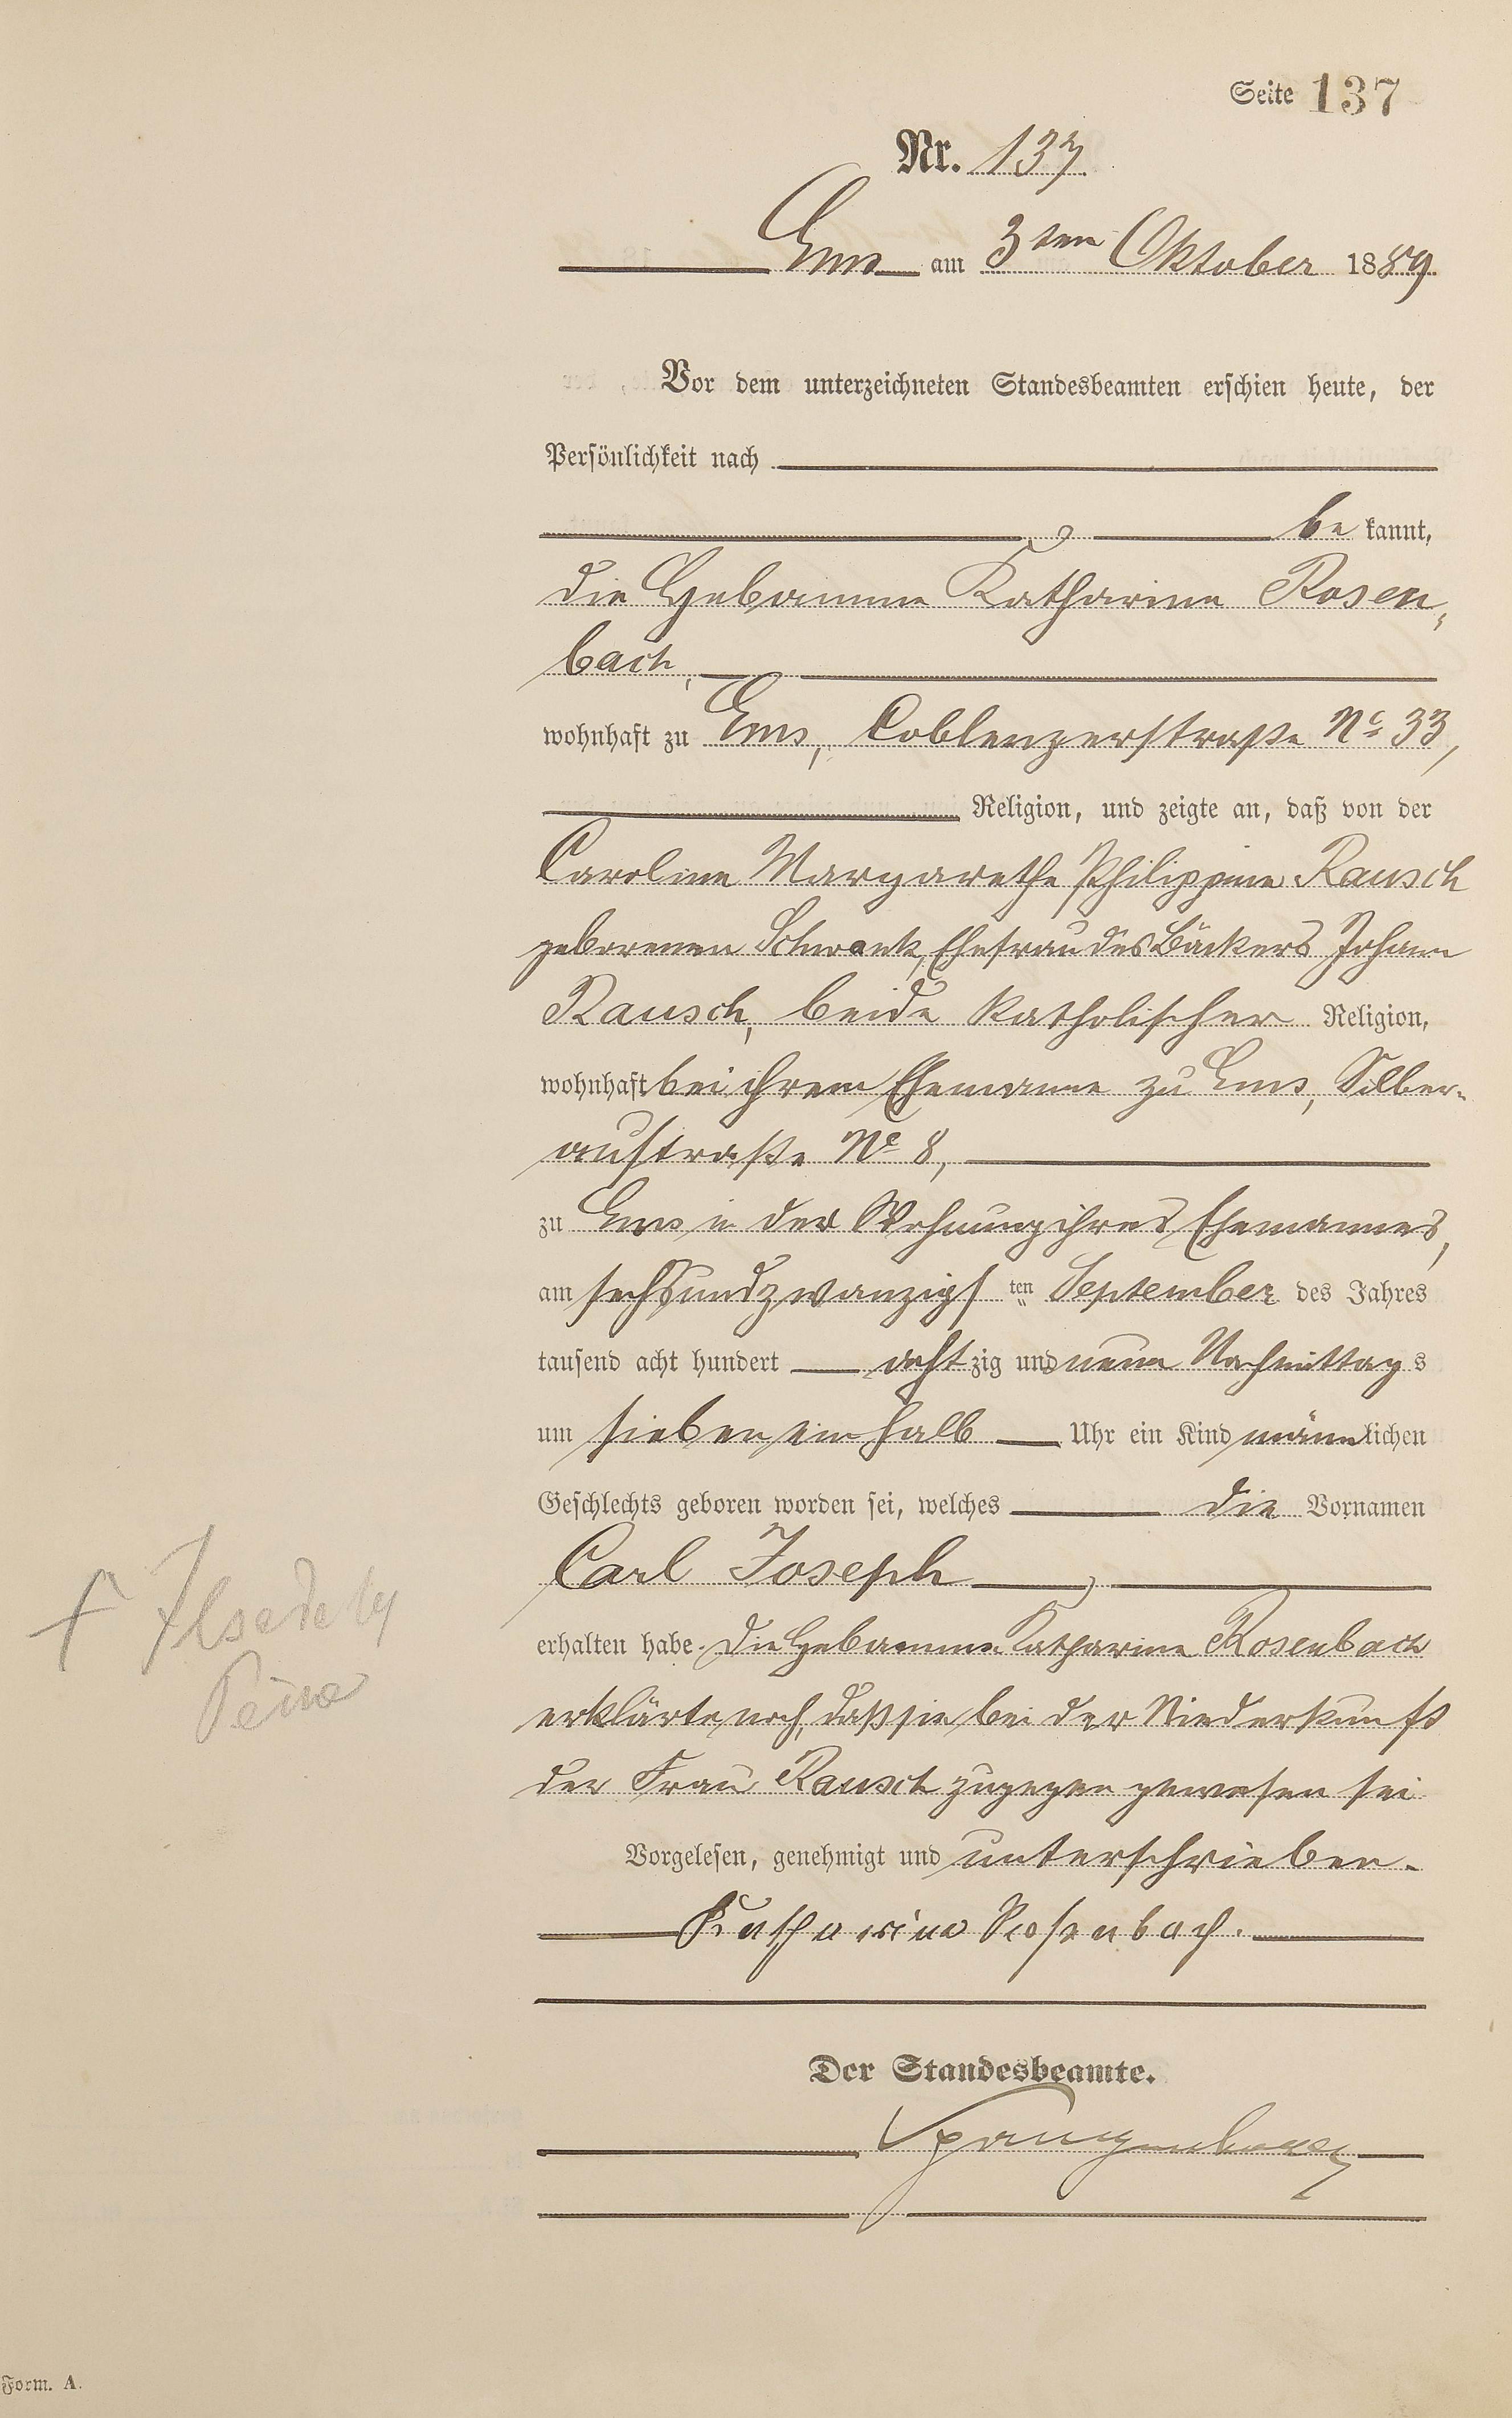 Seite 137
Nr. 137
Ems am 3ten Oktober 1889
Vor dem unterzeichneten Standesbeamten erschien heute, der
Persönlichkeit nach
be kannt,
die Hebamme Katharina Rosen-
bach,
wohnhaft zu Ems, Coblenzerstraße No 33,
Religion, und zeigte an, daß von der
Caroline Margarethe Philippine Rausch
geborenen Schwank, Ehefrau des Bäckers Johann
Rausch, beide katholischer Religion,
wohnhaft bei ihrem Ehemanne zu Ems, Silber-
austraße No 8,
zu Ems in der Wohnung ihres Ehemannes,
am sechsundzwanzigsten September des Jahres
tausend acht hundert achtzig und neun Nachmittags
um sieben ein halb Uhr ein Kind männlichen
Geschlechts geboren worden sei, welches die Vornamen
Carl Joseph
erhalten habe. Die Hebamme Katharina Rosenbach
erklärte noch, daß sie bei der Niederkunft
der Frau Rausch zugegen gewesen sei
Vorgelesen, genehmigt und unterschrieben.
Katharina Rosenbach.
Der Standesbeamte.
Spangenberg
Form. A.